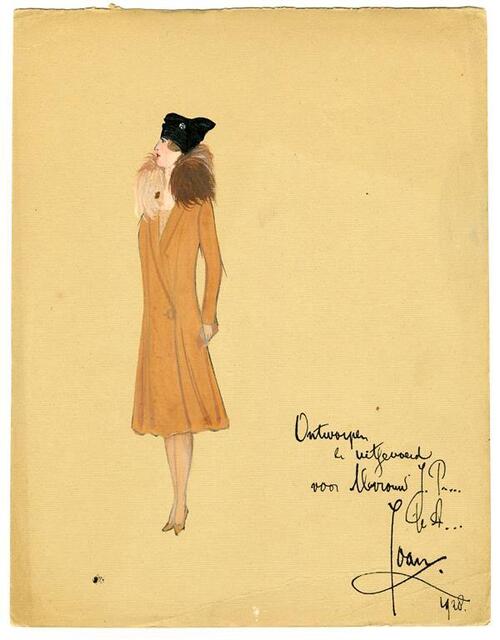 Ontworpen
& uitgevoerd
voor Mevrouw J. P...
de A...
Joan.
1928.